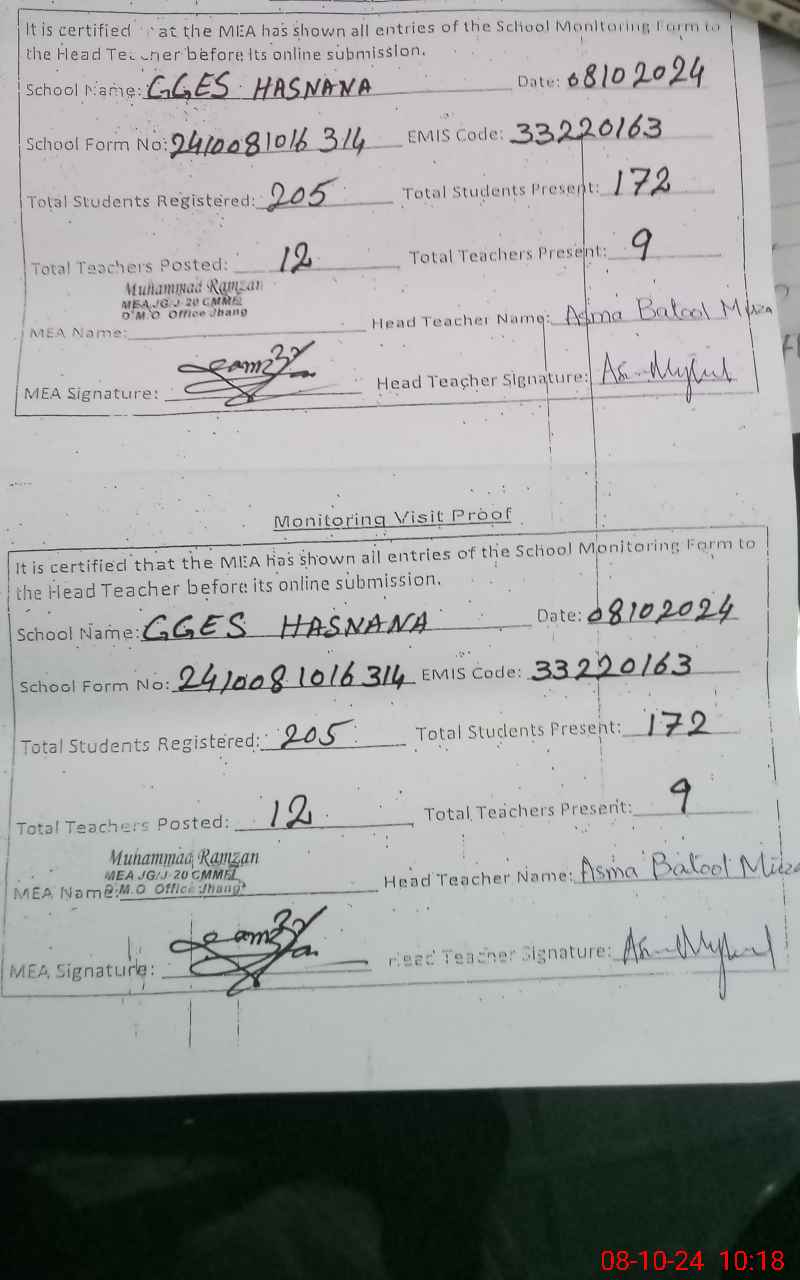 It is certified at the MEA has shown all entries of the School Monitoring Form to
the Head Teacher before its online submission.
School Name: GGES HASNANA Date: 08102024
School Form No: 2410081016314 EMIS Code: 33220163
Total Students Registered: 205 Total Students Present: 172
Total Teachers Posted: 12 Total Teachers Present: 9
Muhammad Ramzan
MEA JG/J-20 CMMEL
D.M.O Office Jhang
MEA Name: Head Teacher Name: Asma Batool
MEA Signature: Head Teacher Signature:
Monitoring Visit Proof
It is certified that the MEA has shown all entries of the School Monitoring Form to
the Head Teacher before its online submission.
School Name: GGES HASNANA Date: 08102024
School Form No: 2410081016314 EMIS Code: 33220163
Total Students Registered: 205 Total Students Present: 172
Total Teachers Posted: 12 Total Teachers Present: 9
Muhammad Ramzan
MEA JG/J-20 CMMEL
MEA Name: D.M.O Office Jhang Head Teacher Name: Asma Batool
MEA Signature: Head Teacher Signature:
08-10-24 10:18